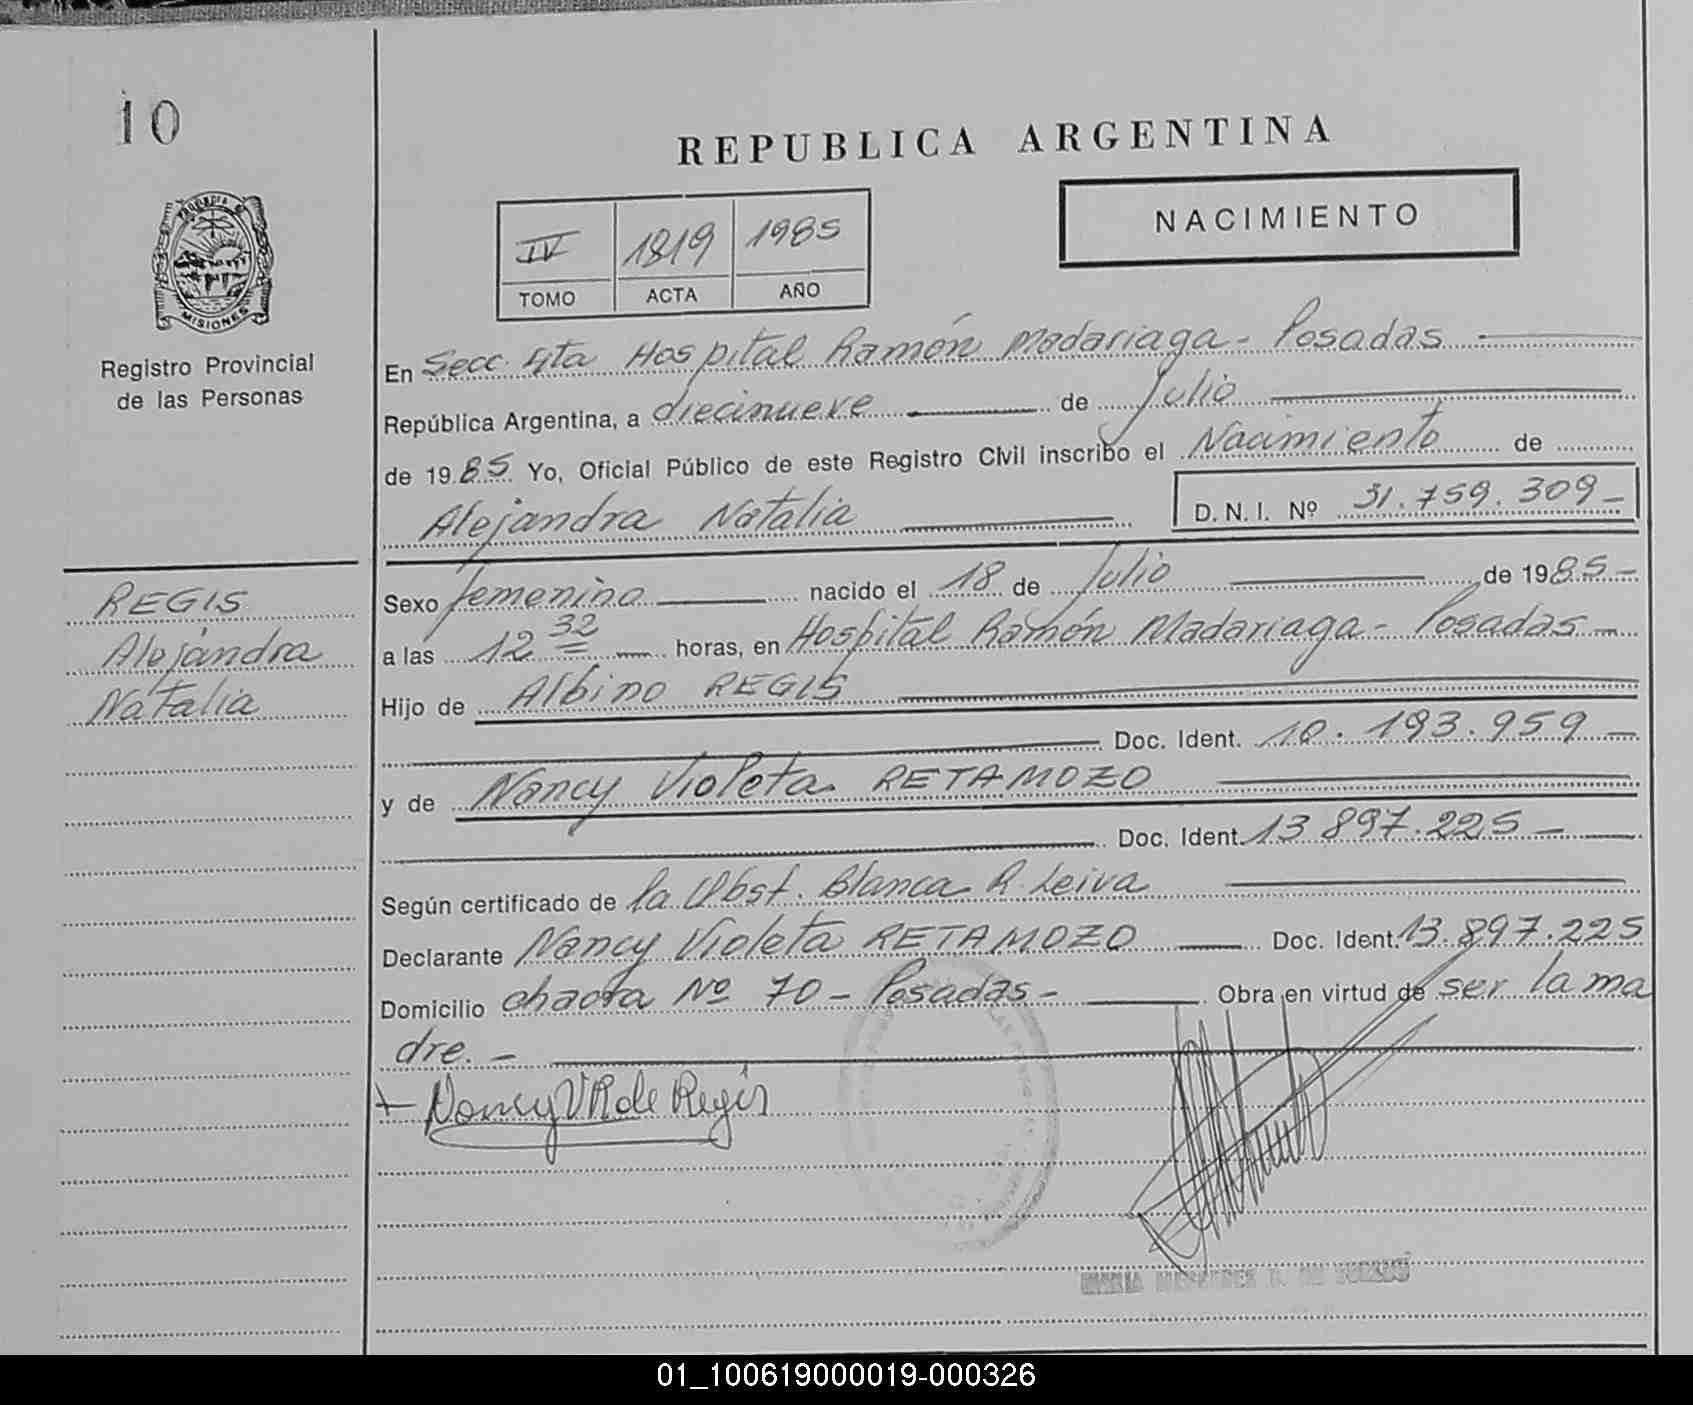 10
REPUBLICA ARGENTINA
NACIMIENTO
IV 1819 1985
TOMO ACTA AÑO
MISIONES
Registro Provincial
de las Personas
En Secc. 4ta Hospital Ramón Madariaga - Posadas
República Argentina, a diecinueve de Julio
de 1985 Yo, Oficial Público de este Registro Civil inscribo el Nacimiento de
Alejandra Natalia D.N.I. Nº 31.759.309-
REGIS
Alejandra
Natalia
Sexo femenino nacido el 18 de Julio de 1985-
a las 12 32 horas, en Hospital Ramón Madariaga - Posadas -
Hijo de Albino REGIS
Doc. Ident. 10.193.959 -
y de Nancy Violeta RETAMOZO
Doc. Ident. 13 897.225 -
Según certificado de la Obst. Blanca R. Leiva
Declarante Nancy Violeta RETAMOZO Doc. Ident. 13.897.225
Domicilio chacra Nº 70 - Posadas - Obra en virtud de ser la ma
dre. -
Nancy V R de Regis
01_100619000019-000326